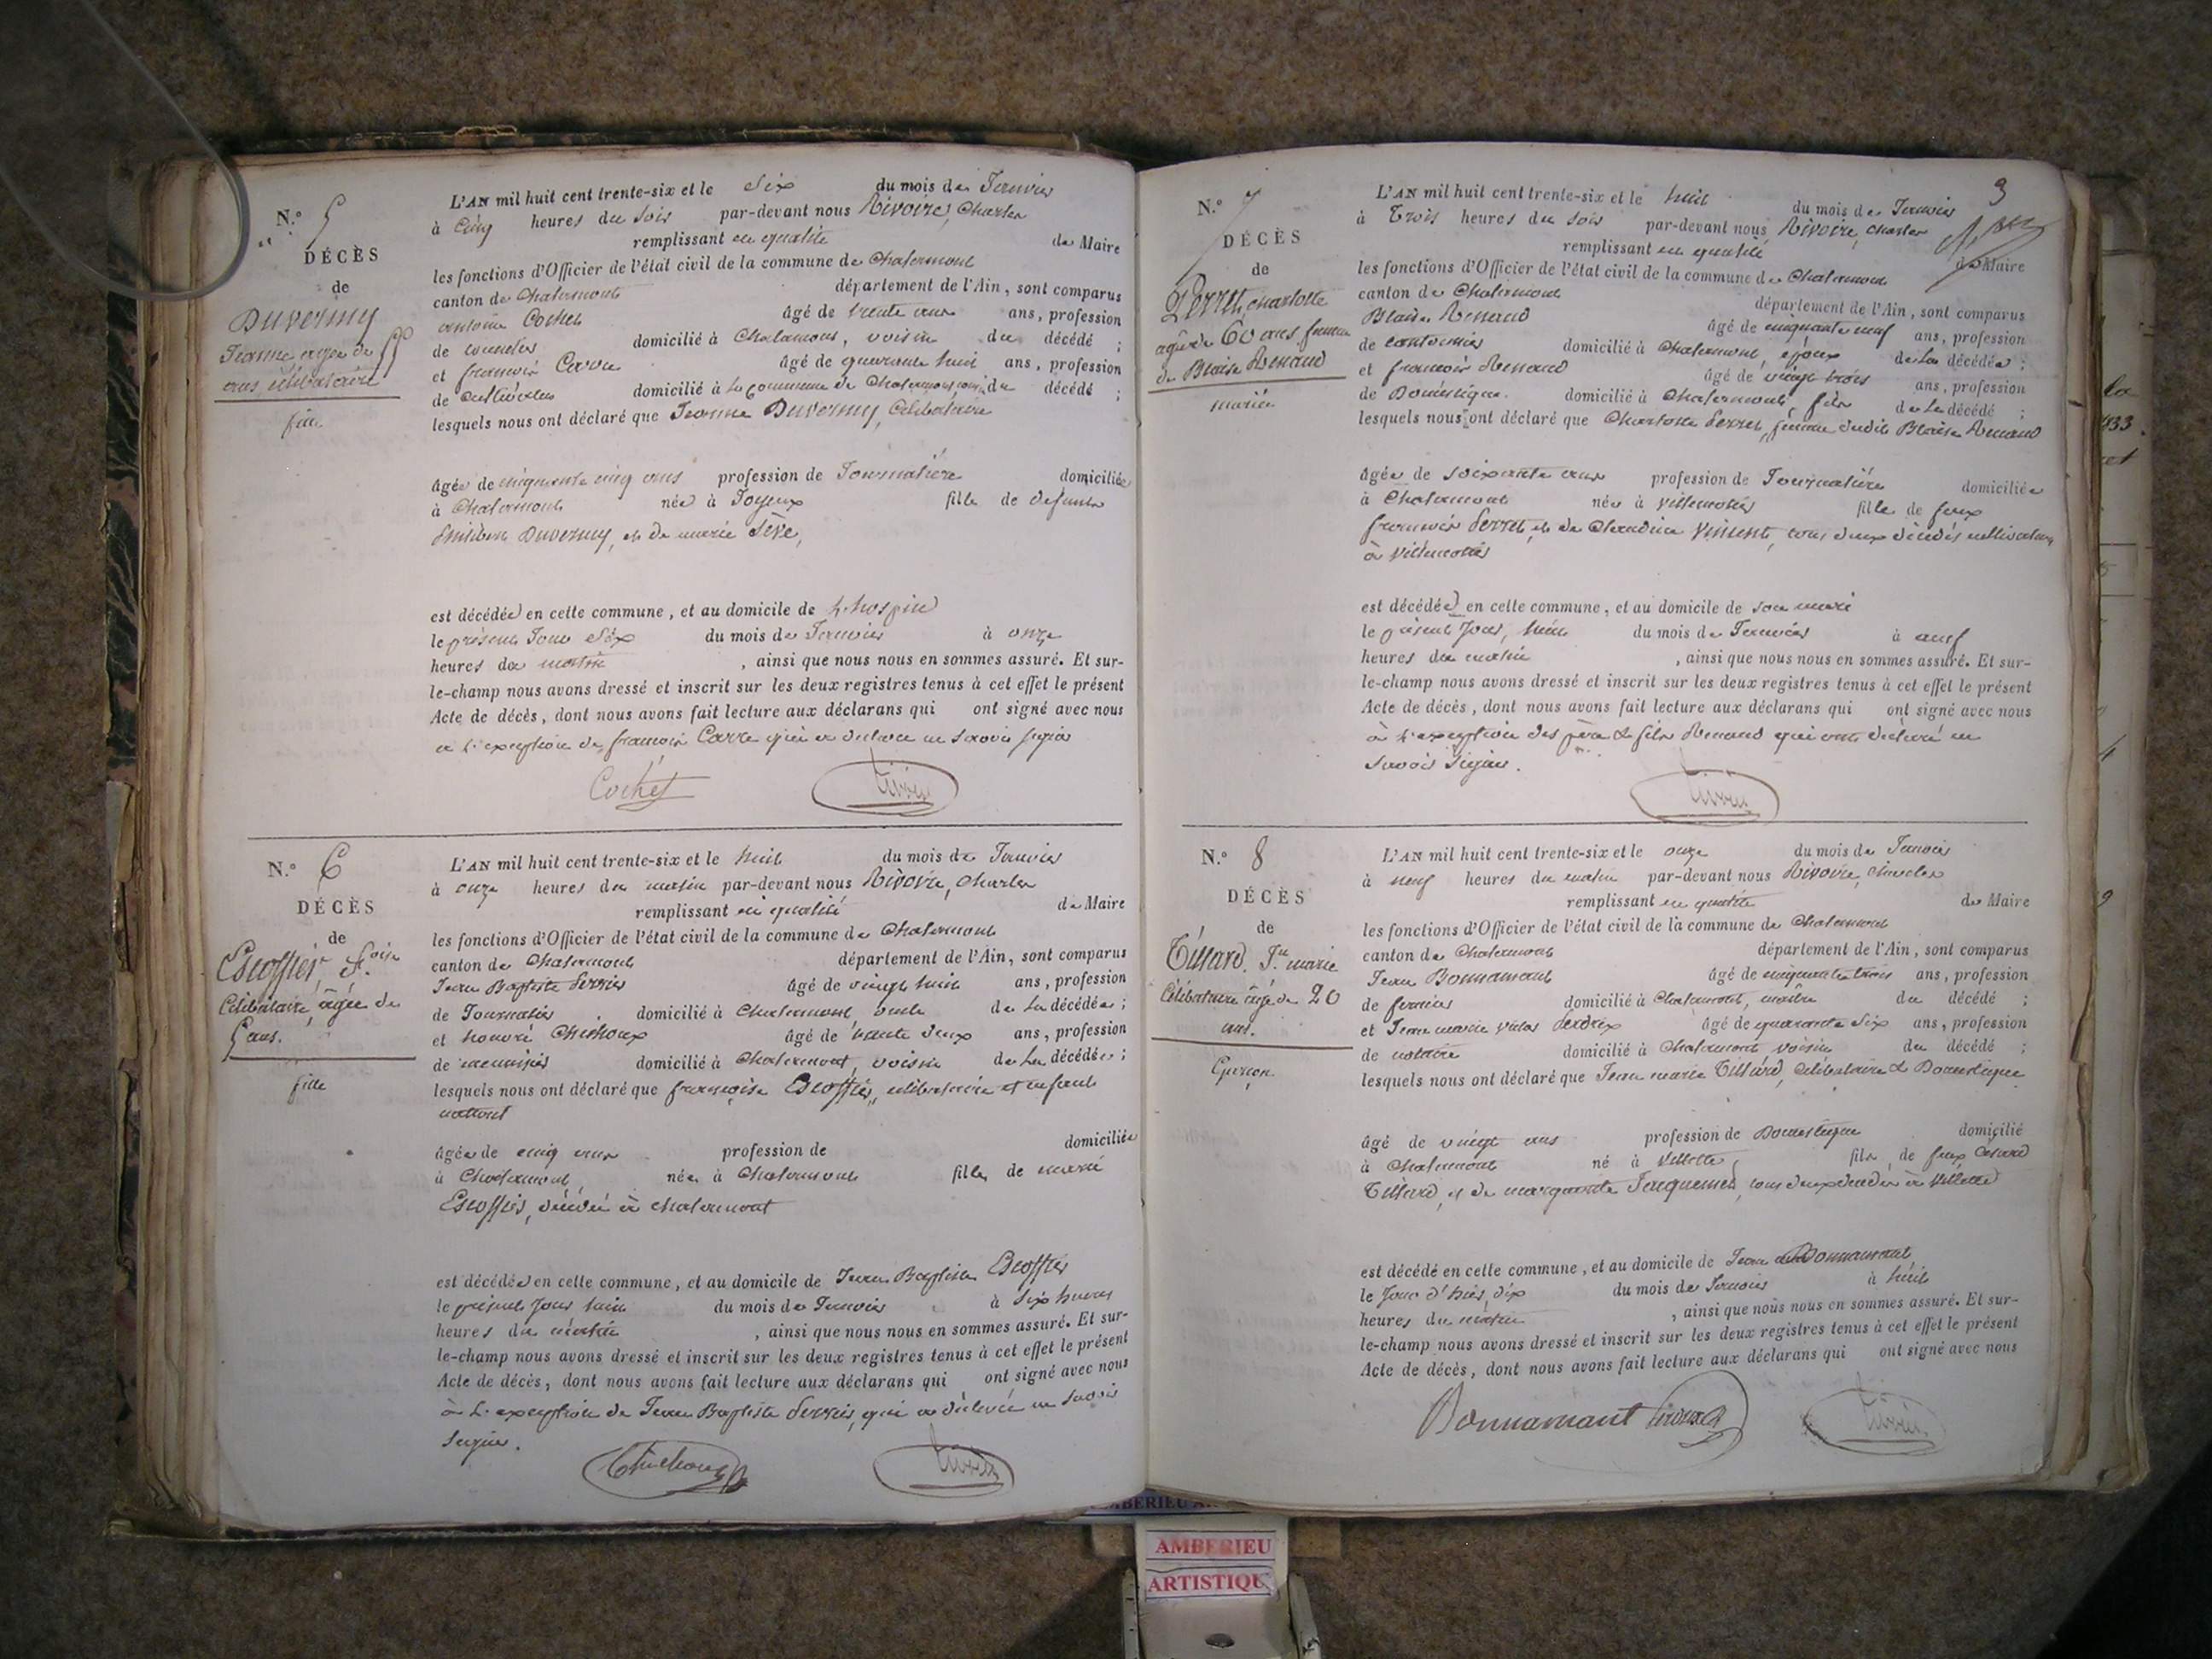 N.° 5
DÉCÈS
de
Duvernay
Jeanne agée de 55
ans célibataire
fille
L'AN mil huit cent trente-six et le six du mois de Janvier
à Cinq heures du soir par-devant nous Rivoire, Charles
remplissant en qualité de Maire
les fonctions d'Officier de l'état civil de la commune de Chalamont
canton de Chalamont département de l'Ain, sont comparus
antoine Cochet âgé de trente ans, profession
de domicilié à Chalamont, voisin du décédé ;
et françois Carre âgé de quarante huit ans, profession
de cultivateur domicilié à la Commune de Chalamont du décédé ;
lesquels nous ont déclaré que Jeanne Duvernay, Célibataire
âgée de cinquante cinq ans profession de Journalière domiciliée
à Chalamont née à Joyeux fille de defunts
Philibert Duvernay, et de marie Sève,
est décédée en cette commune, et au domicile de L'hospice
le présent Jour six du mois de Janvier à onze
heures du matin, ainsi que nous nous en sommes assuré. Et sur-
le-champ nous avons dressé et inscrit sur les deux registres tenus à cet effet le présent
Acte de décès, dont nous avons fait lecture aux déclarans qui ont signé avec nous
à L'exception de françois Carre qui a déclaré ne Savoir signer
Cochet Rivoire
N.° 6
DÉCÈS
de
Escoffier, f.oise
Célibataire, âgée de
5 ans.
fille
L'AN mil huit cent trente-six et le huit du mois de Janvier
à onze heures du matin par-devant nous Rivoire, Charles
remplissant en qualité de Maire
les fonctions d'Officier de l'état civil de la commune de Chalamont
canton de Chalamont département de l'Ain, sont comparus
Jean Baptiste Perrier âgé de vingt huit ans, profession
de Journalier domicilié à Chalamont, oncle de La décédée ;
et honoré Chichoux âgé de trente deux ans, profession
de menuisier domicilié à Chalamont, voisin de La décédée ;
lesquels nous ont déclaré que françoise Escoffier, célibataire et enfant
naturel
âgée de cinq ans profession de domiciliée
à Chalamont, née à Chalamont fille de marie
Escoffier, décédée à Chalamont
est décédée en cette commune, et au domicile de Jean Baptiste Escoffier
le présent Jour huit du mois de Janvier à Six heures
heures du matin, ainsi que nous nous en sommes assuré. Et sur-
le-champ nous avons dressé et inscrit sur les deux registres tenus à cet effet le présent
Acte de décès, dont nous avons fait lecture aux déclarans qui ont signé avec nous
à L'exception de Jean Baptiste Perrier, qui a déclaré ne Savoir
Signer.
Chichoux Rivoire
3
N.° 7
DÉCÈS
de
Perret, charlotte
agée de 60 ans, femme
de Blaise Renaud
mariée
L'AN mil huit cent trente-six et le huit du mois de Janvier
à Trois heures du soir par-devant nous Rivoire, Charles
remplissant en qualité de Maire
les fonctions d'Officier de l'état civil de la commune de Chalamont
canton de Chalamont département de l'Ain, sont comparus
Blaise Renaud âgé de cinquante neuf ans, profession
de cantonnier domicilié à Chalamont, époux de La décédée ;
et françois Renaud âgé de vingt trois ans, profession
de Domestique domicilié à Chalamont, fils de La décédé ;
lesquels nous ont déclaré que Charlotte Perret, femme dudit Blaise Renaud
âgée de soixante ans profession de Journalière domiciliée
à Chalamont née à Villemottier fille de feux
françois Perret, et de Claudine Vincent, tous deux décédés cultivateurs
à Villemottier
est décédée en cette commune, et au domicile de son mari
le présent Jour, huit du mois de Janvier à neuf
heures du matin, ainsi que nous nous en sommes assuré. Et sur-
le-champ nous avons dressé et inscrit sur les deux registres tenus à cet effet le présent
Acte de décès, dont nous avons fait lecture aux déclarans qui ont signé avec nous
à L'exception des père & fils Renaud qui ont déclaré ne
Savoir Signer.
Rivoire
N.° 8
DÉCÈS
de
Tillard, Jn marie
Célibataire âgé de 20
ans.
Garçon
L'AN mil huit cent trente-six et le onze du mois de Janvier
à neuf heures du matin par-devant nous Rivoire, Charles
remplissant en qualité de Maire
les fonctions d'Officier de l'état civil de la commune de Chalamont
canton de Chalamont département de l'Ain, sont comparus
Jean Bonnamant âgé de cinquante trois ans, profession
de fermier domicilié à Chalamont, maître du décédé ;
et Jean marie Perdrix âgé de quarante Six ans, profession
de notaire domicilié à Chalamont voisin du décédé ;
lesquels nous ont déclaré que Jean marie Tillard, Célibataire & Domestique
âgé de vingt ans profession de Domestique domicilié
à Chalamont né à Villette, fils de feux
Tillard, et de marguerite Jacquemet, tous deux décédés à Villette
est décédé en cette commune, et au domicile de Jean Bonnamant
le Jour d'hier, dix du mois de Janvier à huit
heures du matin, ainsi que nous nous en sommes assuré. Et sur-
le-champ nous avons dressé et inscrit sur les deux registres tenus à cet effet le présent
Acte de décès, dont nous avons fait lecture aux déclarans qui ont signé avec nous
Bonnamant Perdrix Rivoire
AMBERIEU
ARTISTIQUE